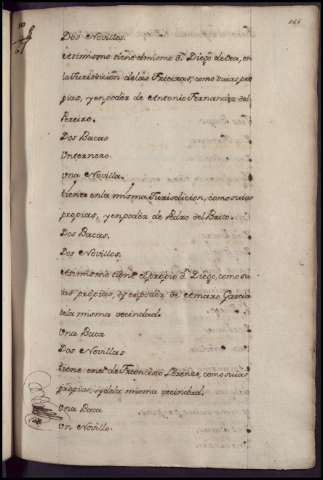 Dos Novillos.
Assimismo tiene el mismo Dn. Diego de Oca, en
la Jurisdicion de las Frieiras, como suias pro
pias, y en poder de Antonio Fernandez del
Pereiro.
Dos Bacas
Un ternero
Una Novilla.
tiene en la misma Jurisdicion, como suias
propias, y en poder de Pedro del Barro.
Dos Bacas.
Dos Novillos.
Asimismo tiene el propio Dn. Diego, como su
ias propias, en poder de Amaro Garcia
de la misma vecindad
Una Baca
Dos Novillas
tiene en de Francisco Lorenzo, como suias
propias, y de la misma vecindad.
Una Baca
Un Novillo.